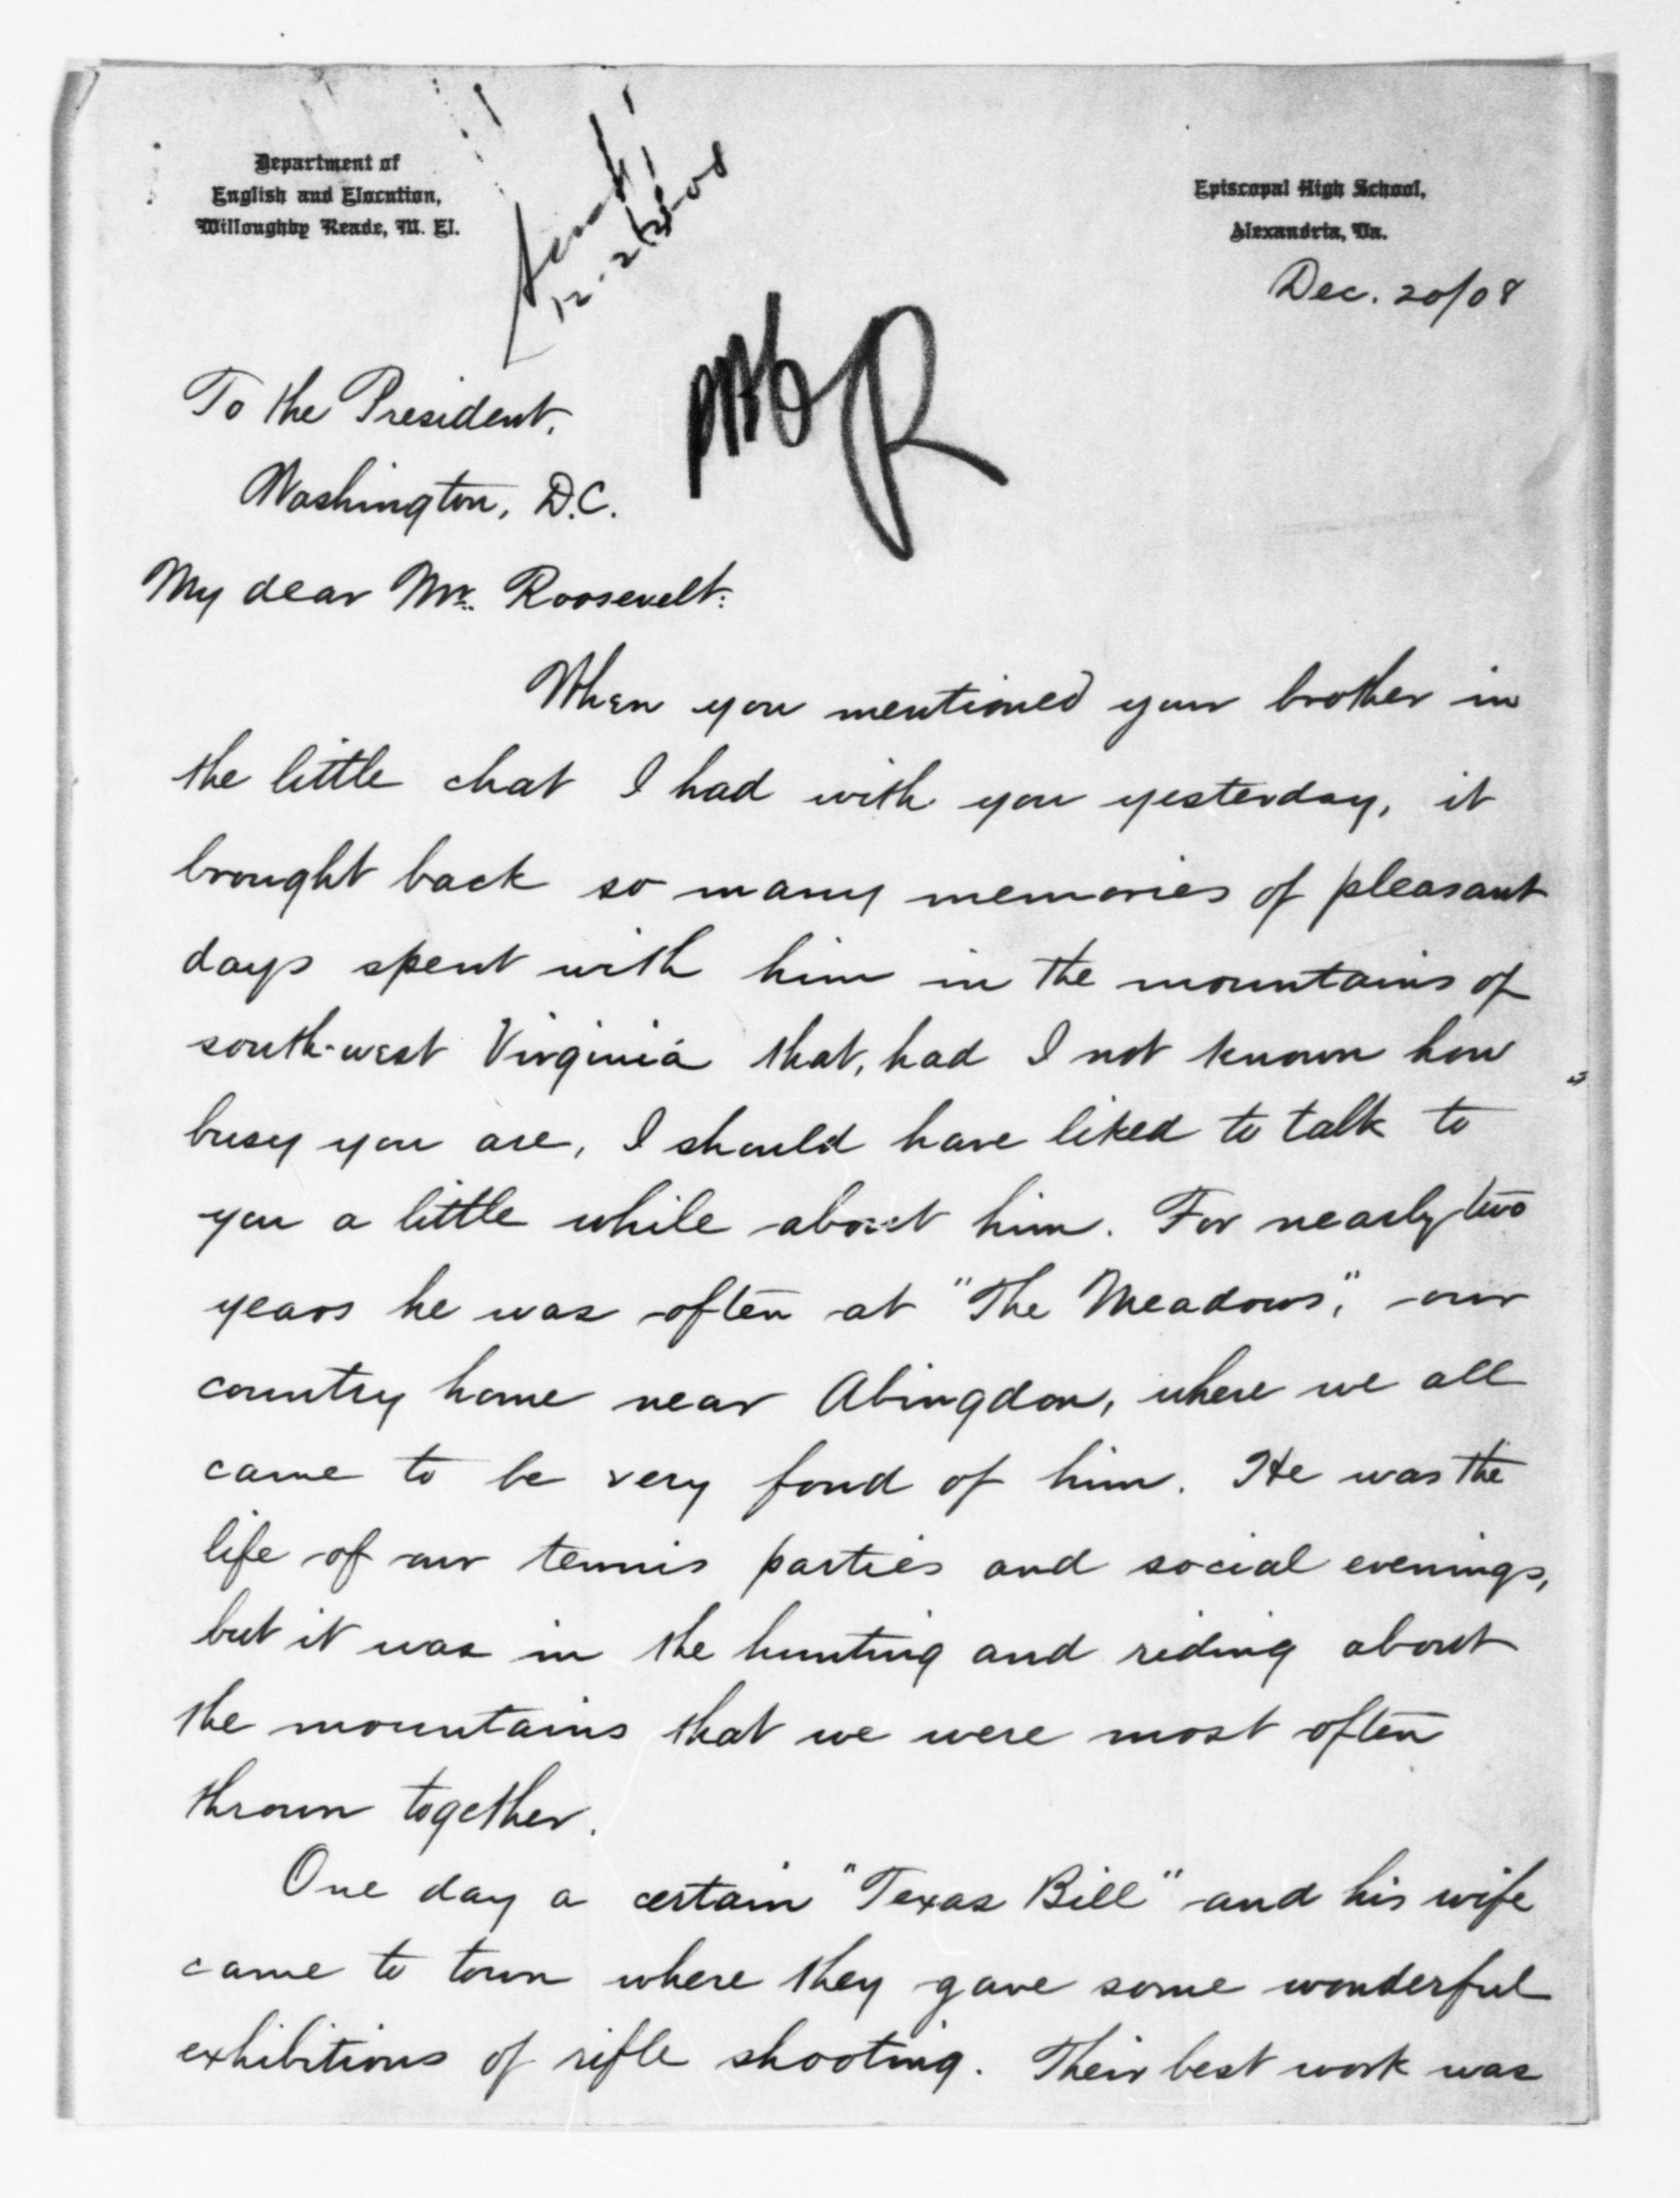 Department of
English and Elocution,
Willoughby Reade, M. El.
Episcopal High School,
Alexandria, Va.
Dec. 20/08
To the President,
Washington, D.C.
My dear Mr. Roosevelt:
When you mentioned your brother in
the little chat I had with you yesterday, it
brought back so many memories of pleasant
days spent with him in the mountains of
south-west Virginia that, had I not known how
busy you are, I should have liked to talk to
you a little while about him. For nearly two
years he was often at "The Meadows", our
country home near Abingdon, where we all
came to be very fond of him. He was the
life of our tennis parties and social evenings,
but it was in the hunting and riding about
the mountains that we were most often
thrown together.
One day a certain "Texas Bill" and his wife
came to town where they gave some wonderful
exhibitions of rifle shooting. Their best work was